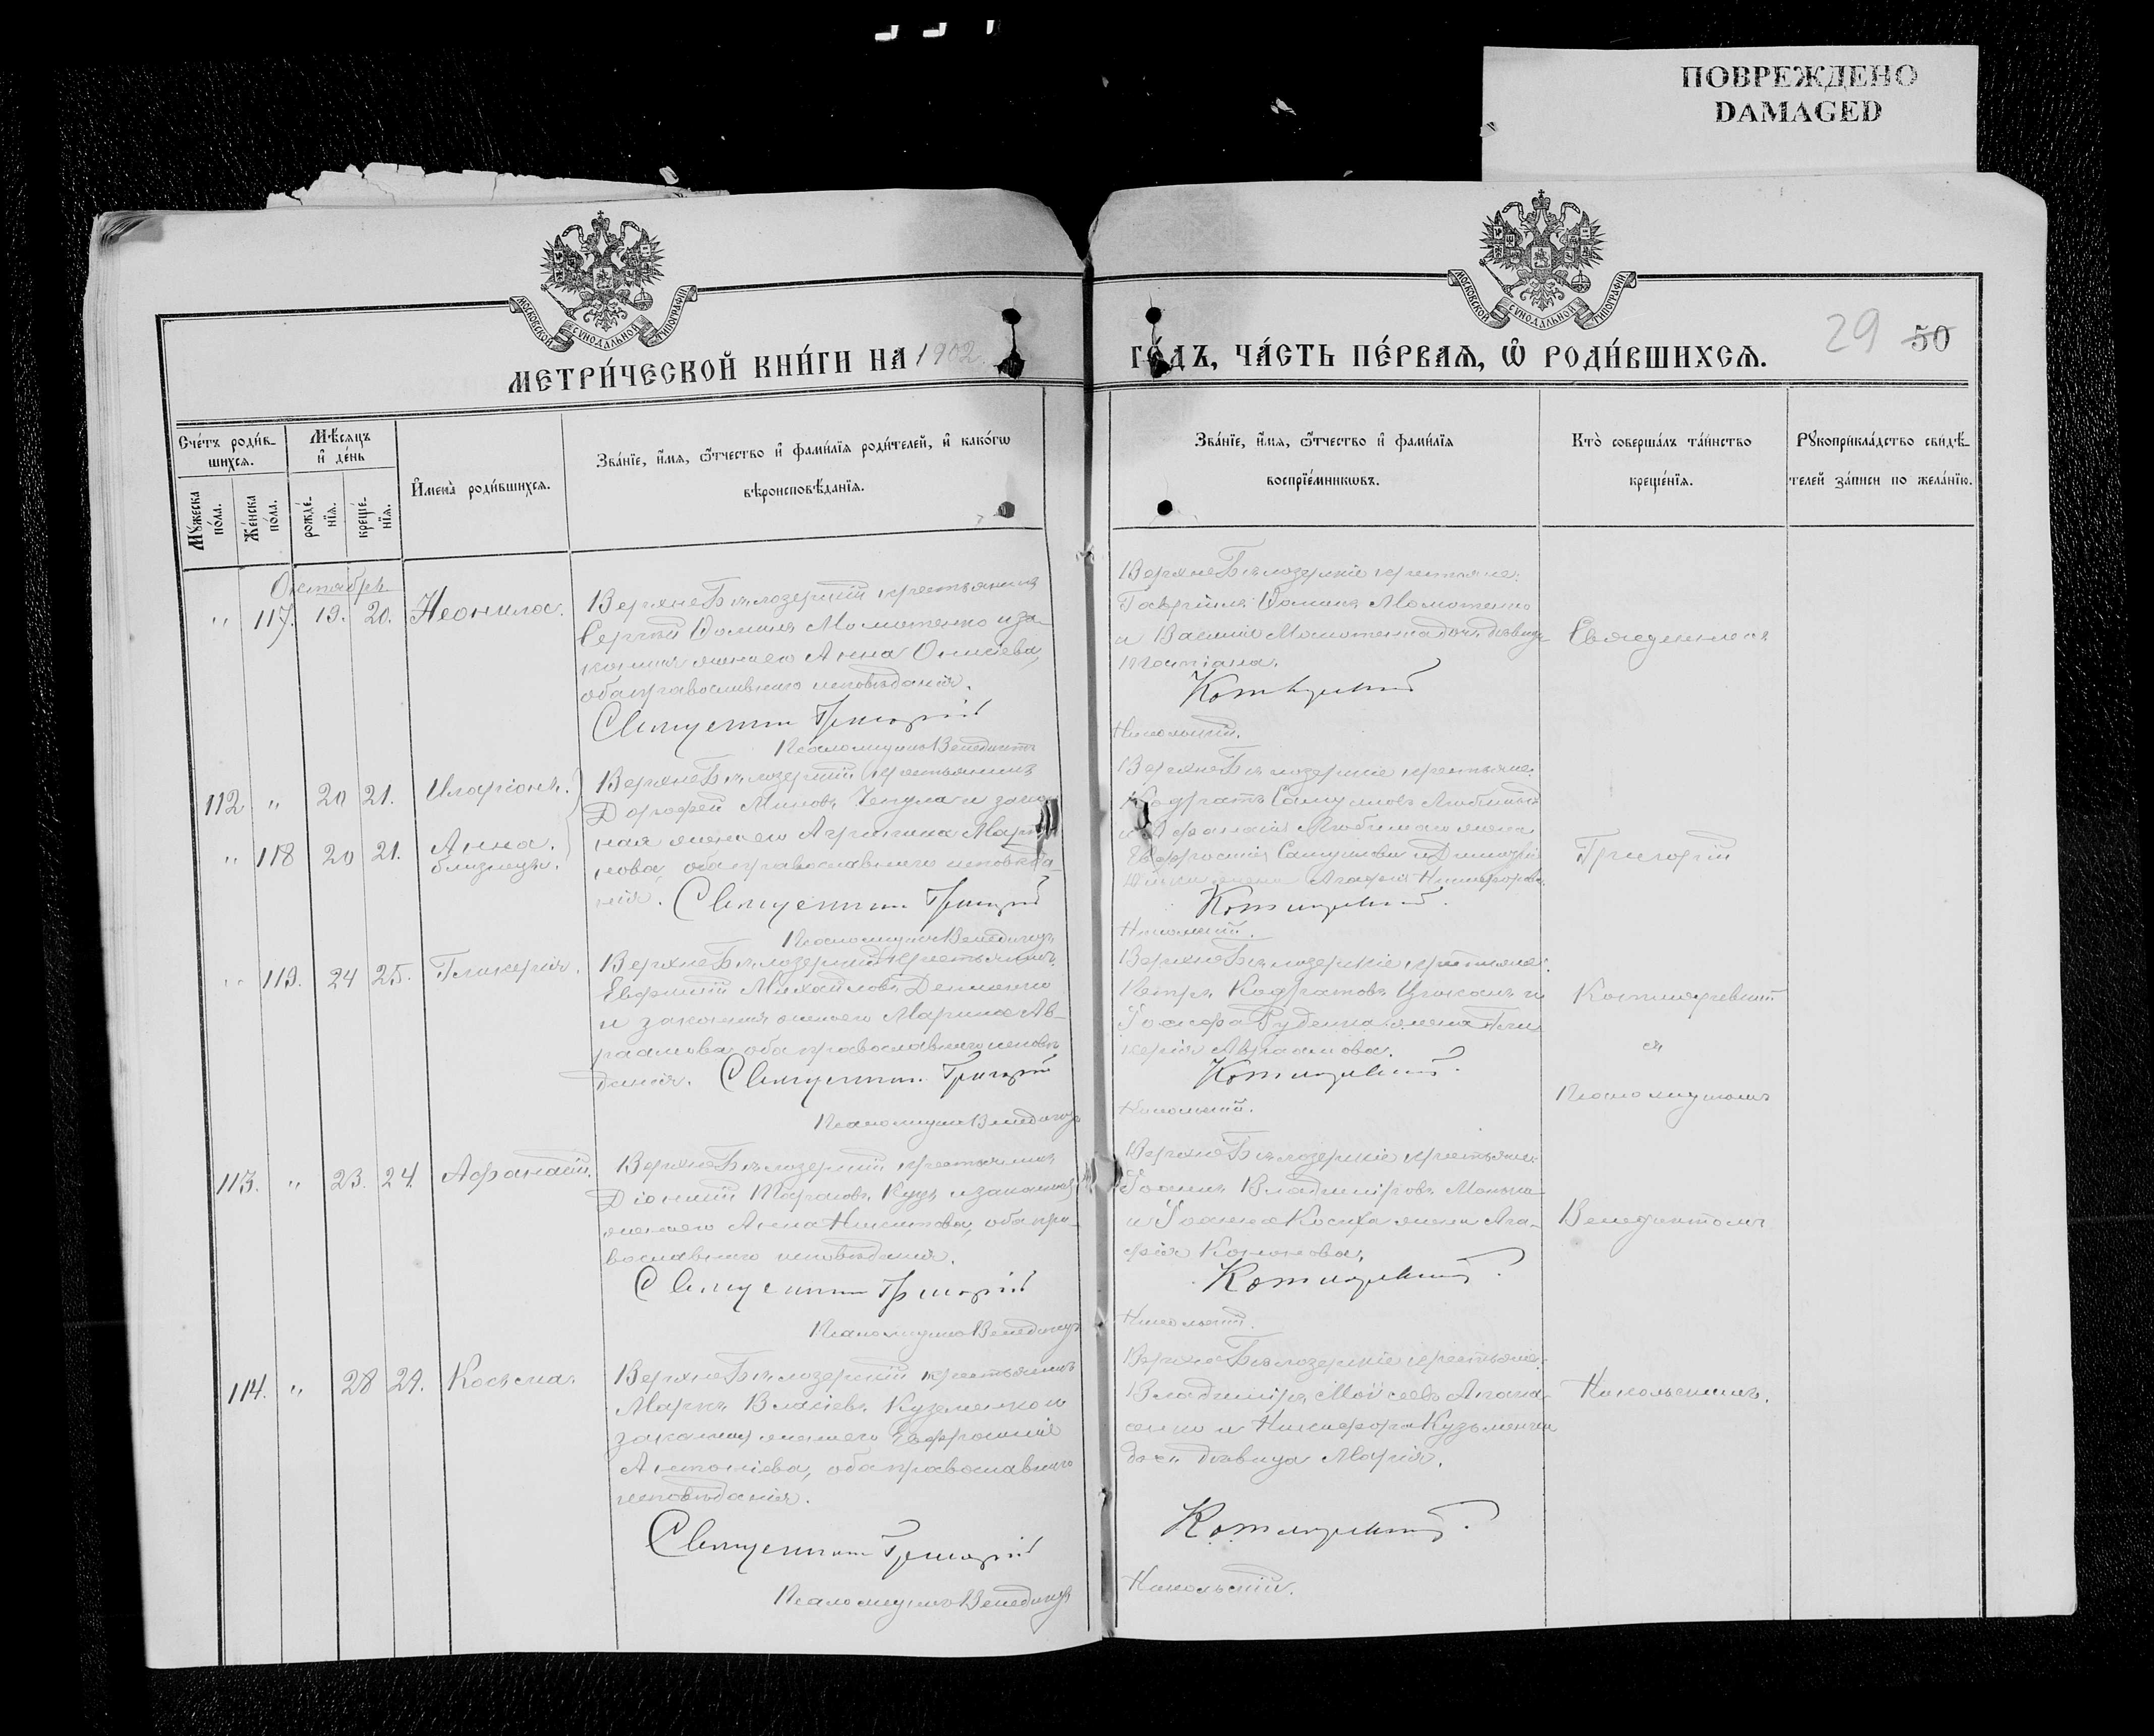 ПОВРЕЖДЕНО
DAMAGED
МОСКОВСКОЙ СѴНОДАЛЬНОЙ ТИПОГРАФІИ.
МОСКОВСКОЙ СѴНОДАЛЬНОЙ ТИПОГРАФІИ.
МЕТРИ́ЧЕСКОЙ КНИ́ГИ НА 1902.
ГО́ДЪ, ЧА́СТЬ ПЕ́РВАѦ, Ѡ҆ РОДИ́ВШИХСѦ.
29 50
Сче́тъ роди́в-
шихсѧ.
Мꙋ́жеска
по́ла.
Же́нска
по́ла.
Мѣ́сѧцъ
и҆ де́нь
рожде́-
нїѧ.
креще́-
нїѧ.
И҆мена̀ роди́вшихсѧ.
Зва́нїе, и҆́мѧ, ѻ҆́тчество и҆ фами́лїѧ роди́телей, и҆ како́гѡ
вѣроисповѣ́данїѧ.
Зва́нїе, и҆́мѧ, ѻ҆́тчество и҆ фами́лїѧ
воспрїе́мникѡвъ.
Кто̀ соверша́лъ та́инство
креще́нїѧ.
Рꙋкоприкла́дство свидѣ́-
телей за́писи по жела́нїю.
Октябрь
" 117. 19. 20. Неонила.
ВерхнеБѣлозерскій крестьянинъ
Сергій Момотенко и за-
конная жена его Анна Онисіева,
оба православнаго исповѣданія.
Григорій
Псаломщикъ Венедиктъ
ВерхнеБѣлозерскіе крестьяне:
Гавріилъ Момотенко
и дочь дѣвица
Котляревскій
Никольскій.
Священникъ
112 " 20 21. Иларіонъ.
" 118 20 21. Анна.
близнецы.
ВерхнеБѣлозерскій крестьянинъ
Дорофей и закон-
ная жена его Агрипина
нова, оба православнаго исповѣда-
нія. Священникъ Григорій
Псаломщикъ Венедиктъ
ВерхнеБѣлозерскіе крестьяне:
Кодратъ Самуиловъ
и жена
Евфросинія Самуилова и
жена Агафія Никифорова.
Котляревскій.
Никольскій.
Григорій
" 119. 24 25. Гликерія.
ВерхнеБѣлозерскій крестьянинъ
Евфимій Михайловъ Деменко
и законная жена его Марина Ав-
раамова, оба православнаго исповѣ-
данія. Священникъ Григорій
Псаломщикъ Венедиктъ
ВерхнеБѣлозерскіе крестьяне:
Петръ Кодратовъ и
Іосифа Руденка жена Гли-
керія Авраамова.
Котляревскій.
Никольскій.
Котляревскій
съ
Псаломщикомъ
113. " 23. 24. Афанасій.
ВерхнеБѣлозерскій крестьянинъ
Діонисій Тарасовъ Куцъ и законная
жена его Анна Никитова, оба пра-
вославнаго исповѣданія.
Священникъ Григорій
Псаломщикъ Венедиктъ
ВерхнеБѣлозерскіе крестьяне:
Іоаннъ Владиміровъ
и Іоанна Косика жена Ага-
фія Кононова.
Котляревскій.
Никольскій.
Венедиктомъ
114. " 28 29. Косьма.
ВерхнеБѣлозерскій крестьянинъ
Маркъ Власіевъ Кузьменко и
законная жена его Евфросинія
Антоніева, оба православнаго
исповѣданія.
Священникъ Григорій
Псаломщикъ Венедиктъ
ВерхнеБѣлозерскіе крестьяне:
Владиміръ Моѵсеевъ Апана-
сенко и Никифора Кузьменка
дочь дѣвица Марія.
Котляревскій.
Никольскій.
Никольскимъ.